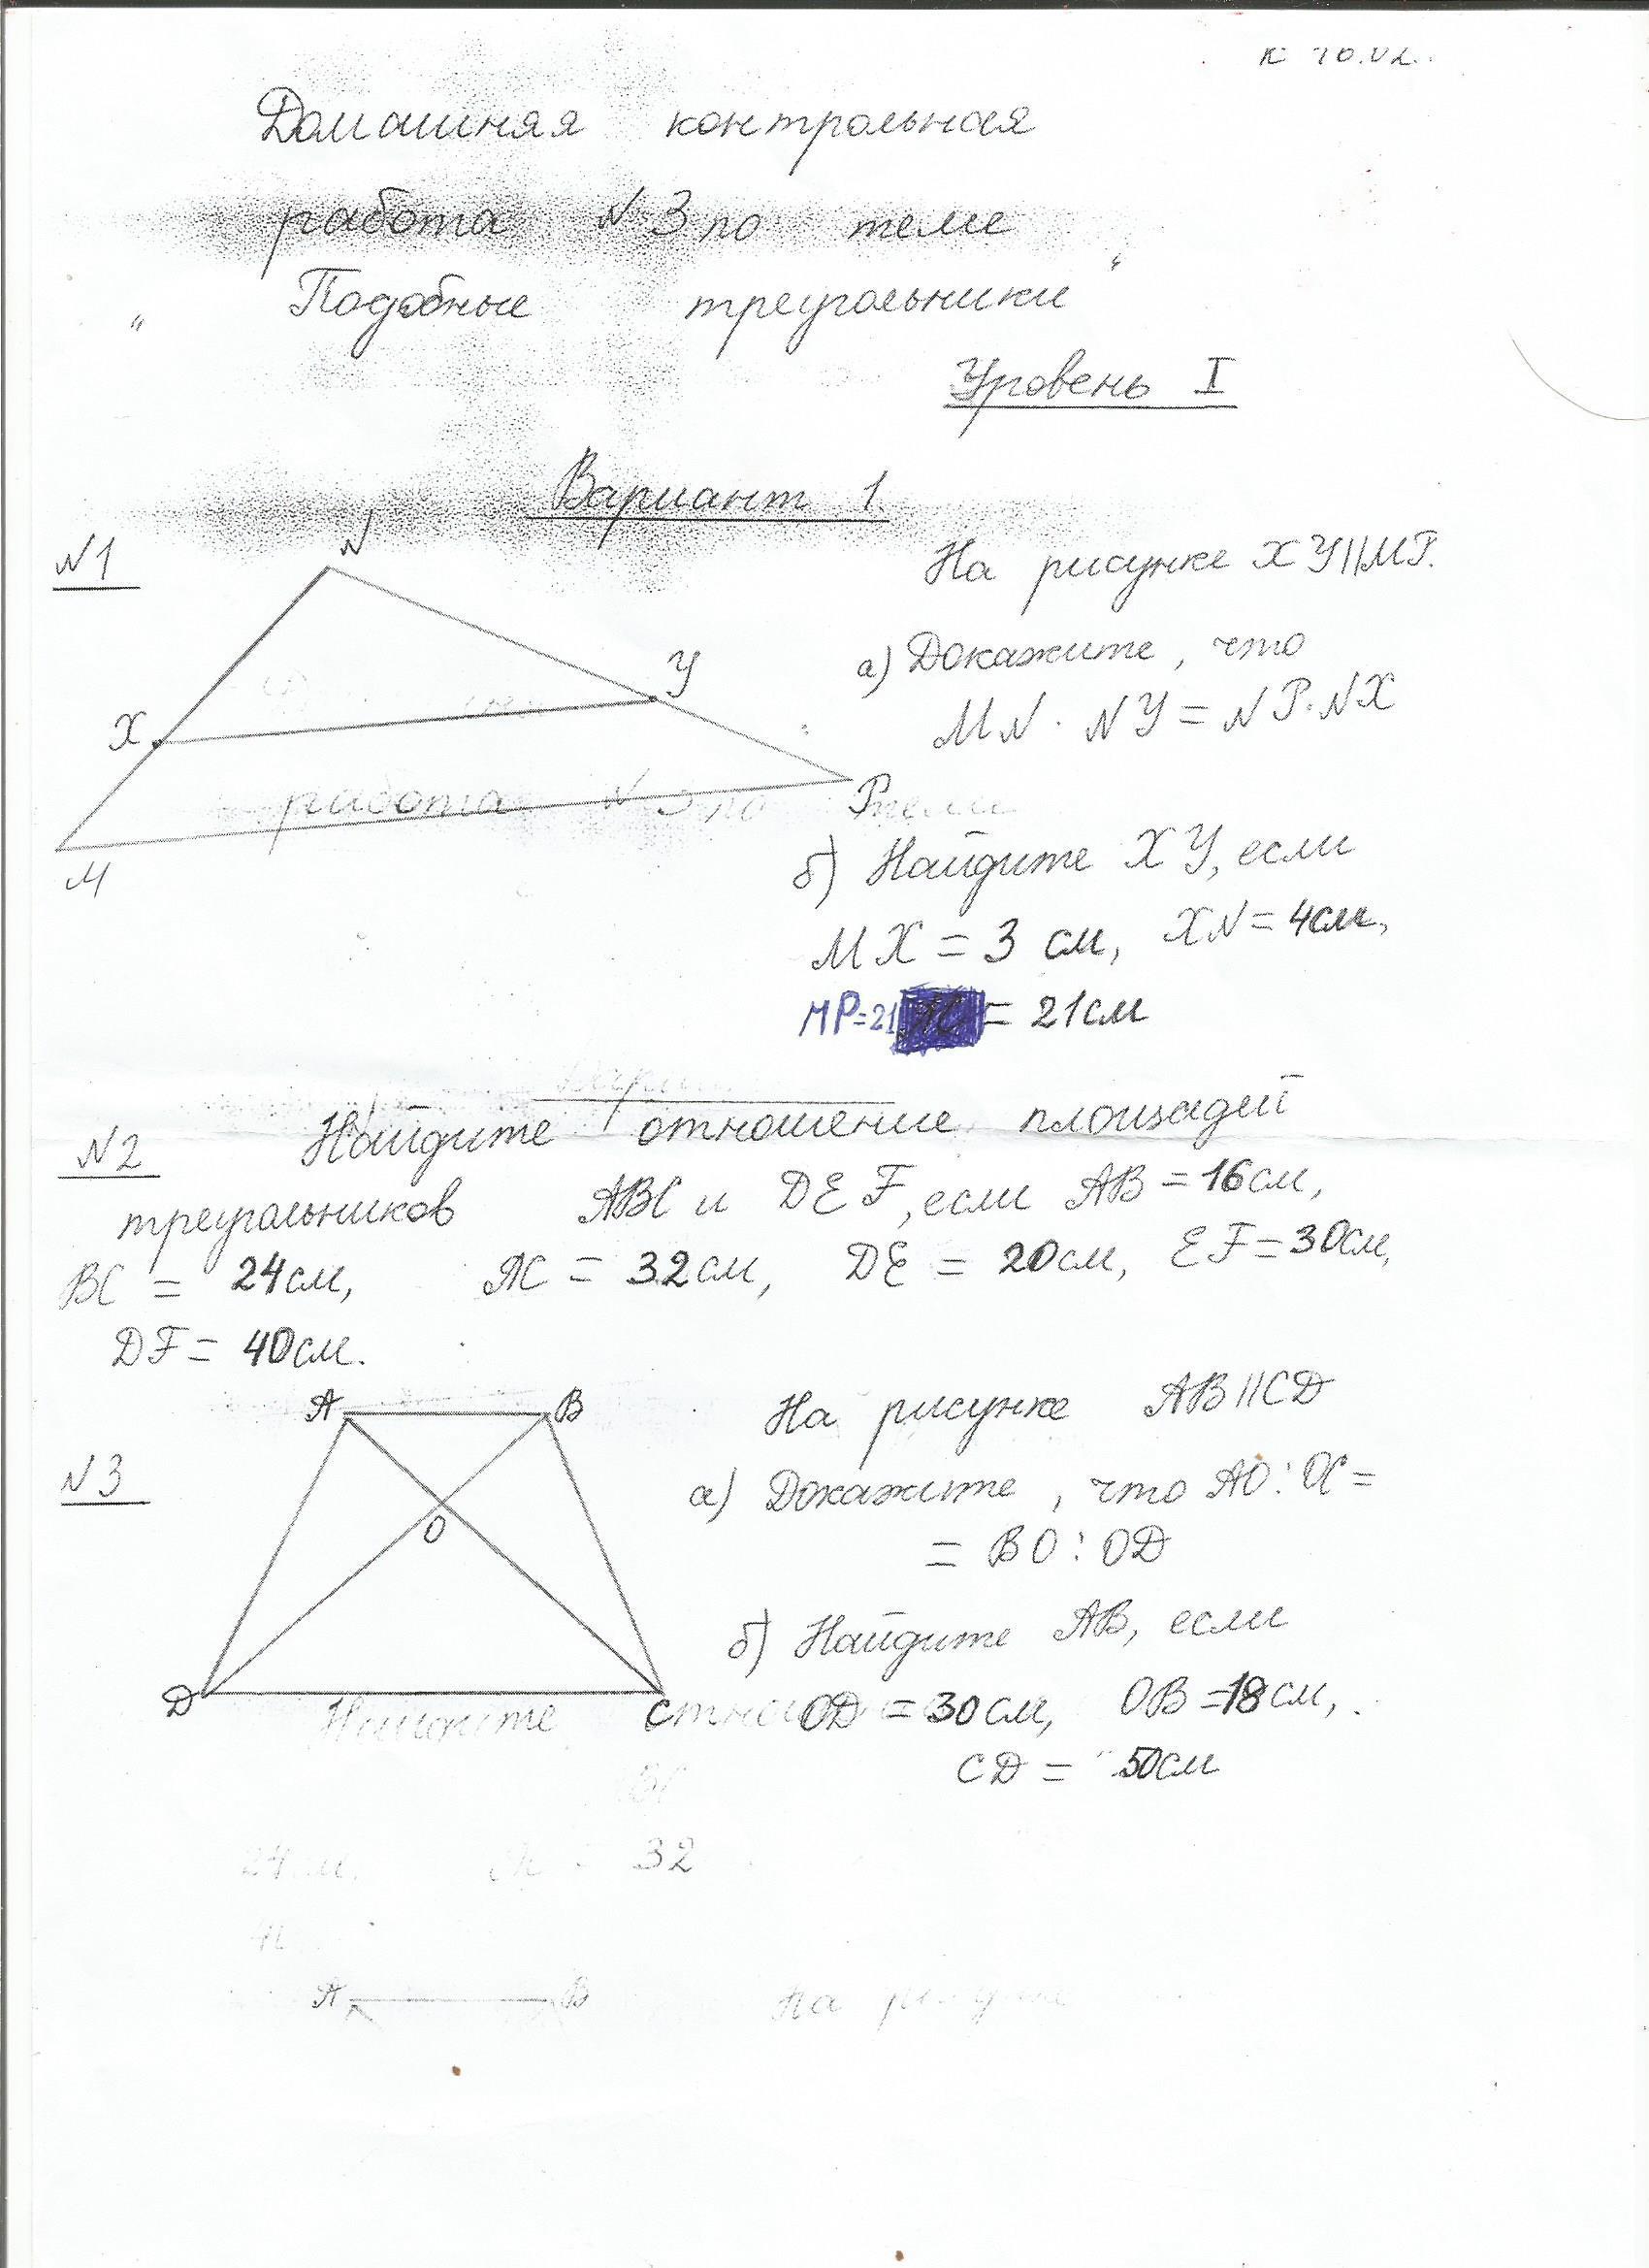 Домашняя контрольная
работа №3 по теме
" Подобные треугольники "
Уровень I
Вариант 1.
№1
На рисунке XY||MP.
а) Докажите, что
MN · NY = NP · NX
N
Y
X
P
M
работа № 3 по теме
б) Найдите XY, если
MX = 3 см, XN = 4см,
MP=21 = 21см
№2 Найдите отношение площадей
треугольников ABC и DEF, если AB = 16см,
BC = 24см, AC = 32см, DE = 20см, EF = 30см,
DF = 40см.
№3
A B
O
D C
На рисунке AB||CD
а) Докажите, что AO : OC =
= BO : OD
б) Найдите AB, если
OD = 30см, OB = 18см,
CD = 50см
Найдите
32
A B На